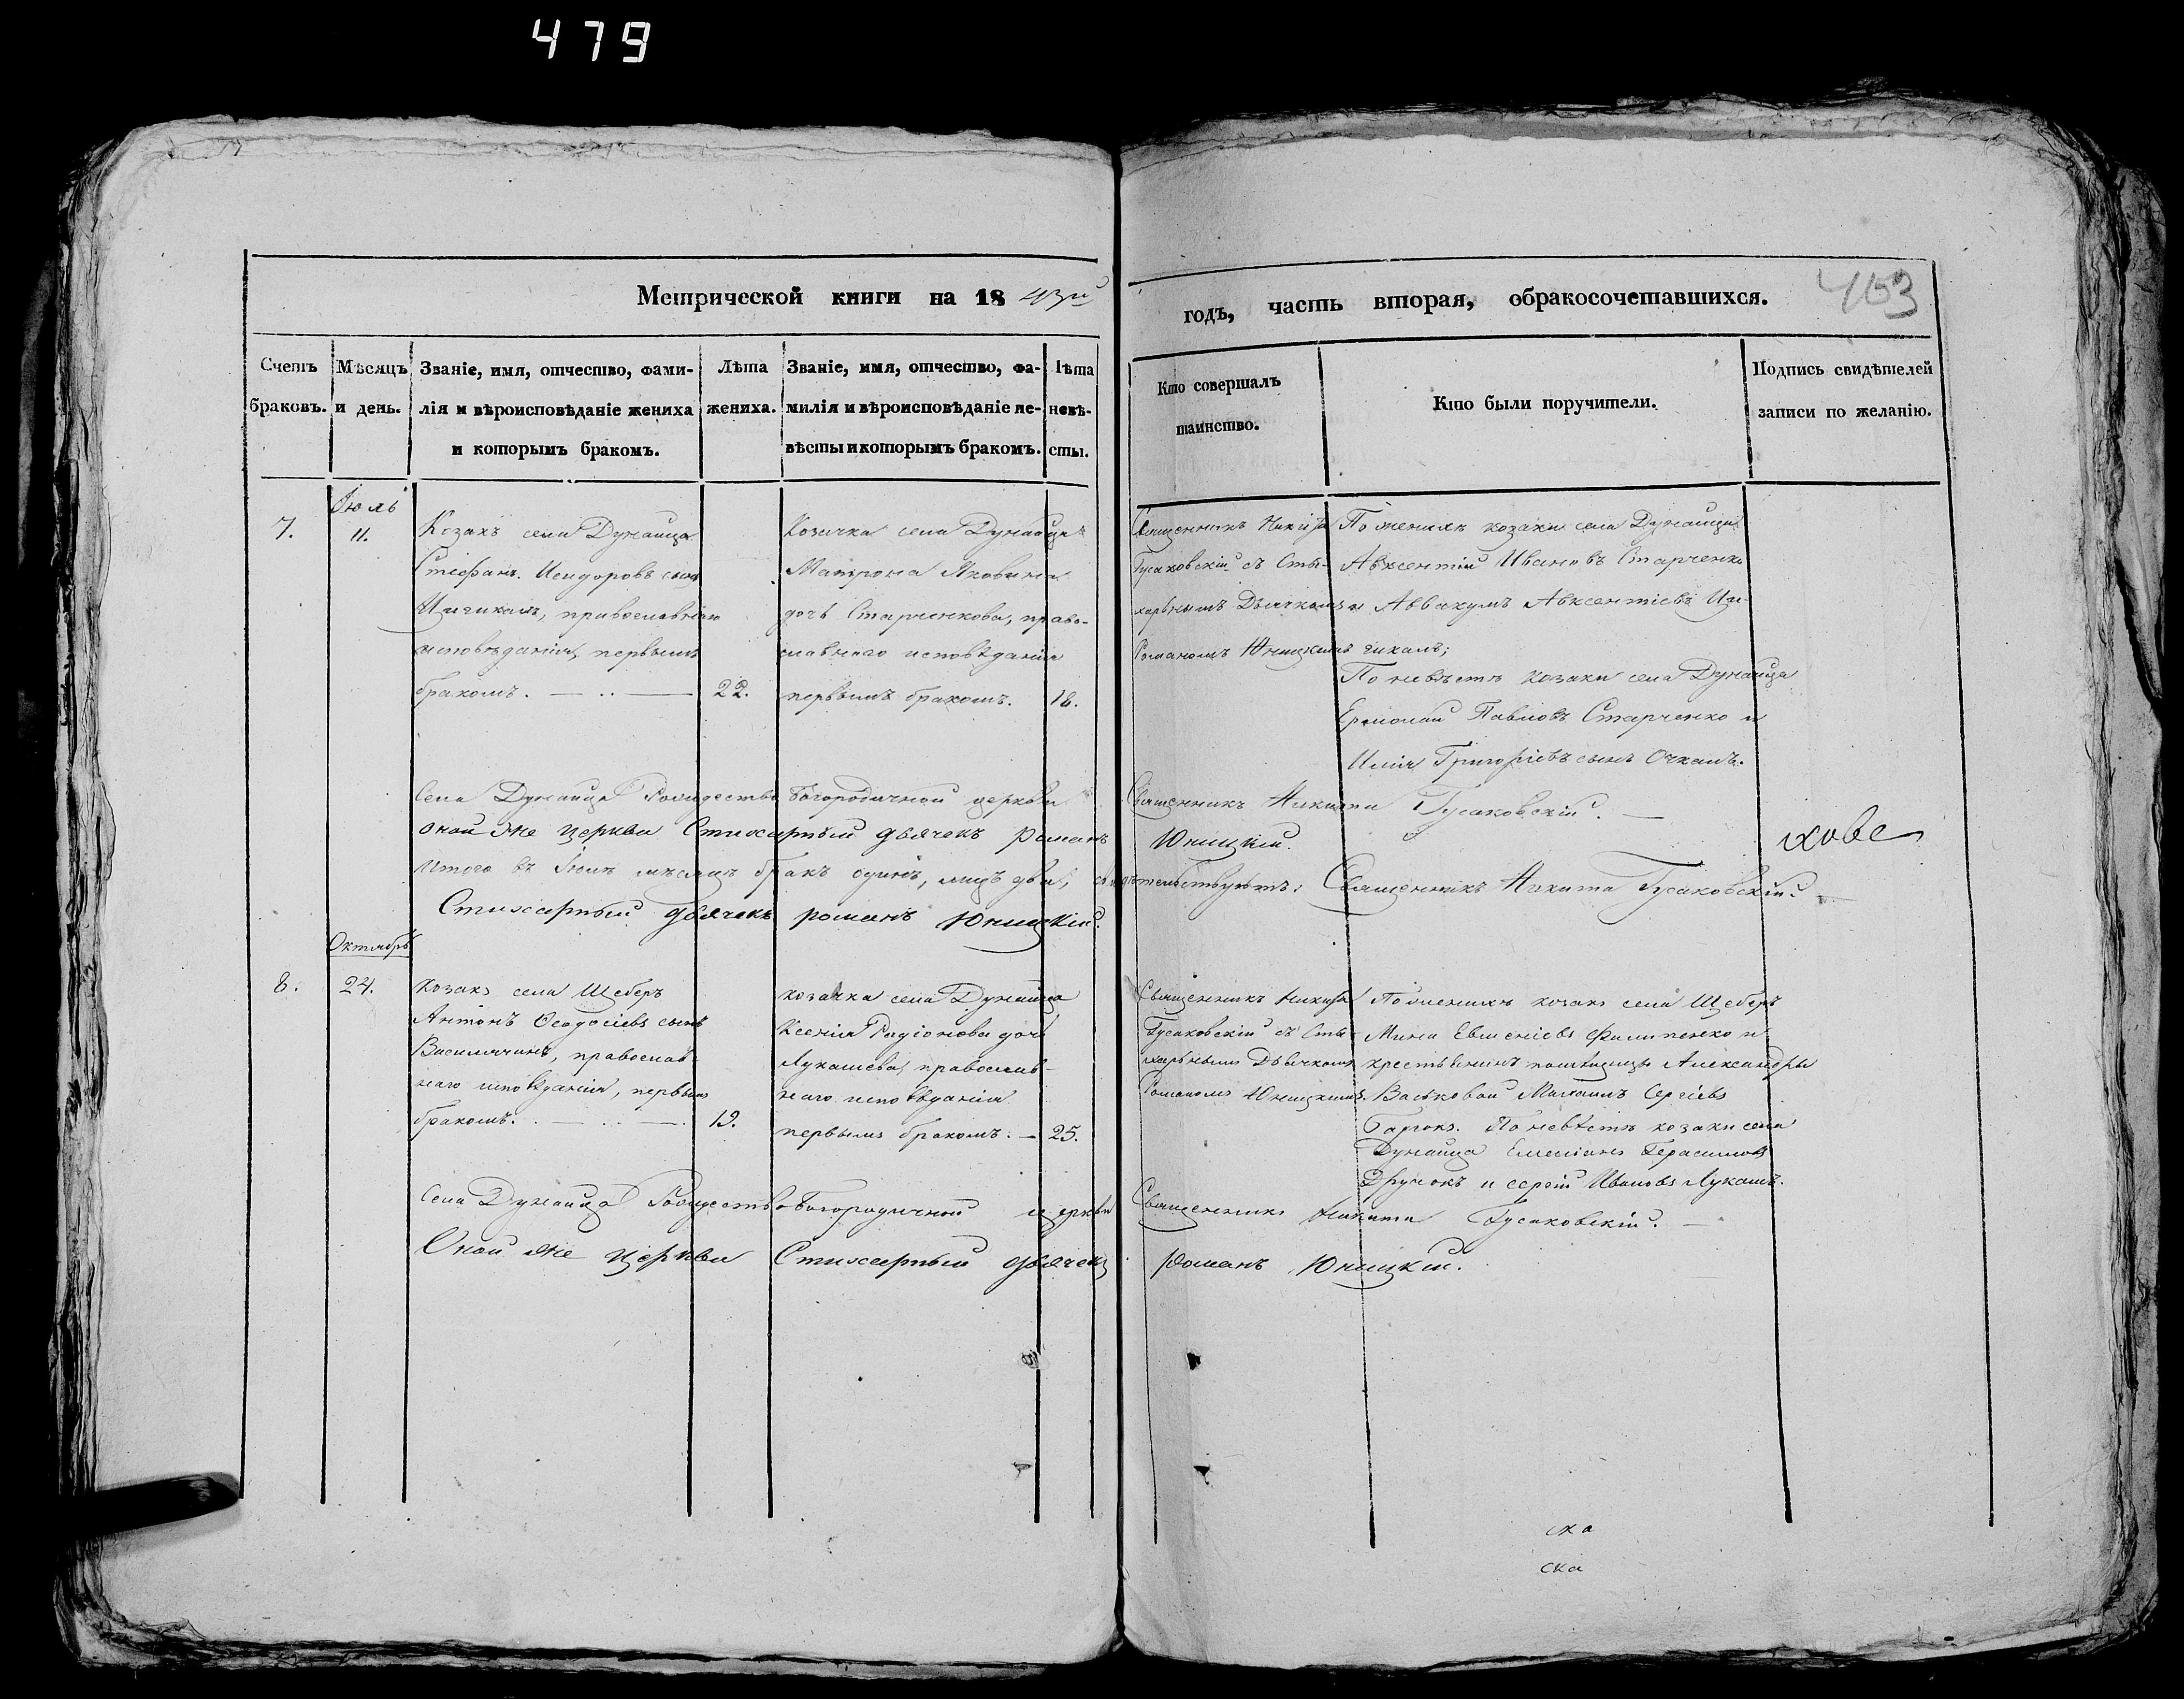 479
Метрической книги на 18 43й
годъ, часть вторая, обракосочетавшихся.
463
Счетъ браковъ.
Мѣсяцъ и день.
Званіе, имя, отчество, фами-
лія и вѣроисповѣданіе жениха
и которымъ бракомъ.
Лѣта жениха.
Званіе, имя, отчество, фа-
милія и вѣроисповѣданіе не-
вѣсты и которымъ бракомъ.
лѣта невѣ-
сты.
Кто совершалъ
таинство.
Кто были поручители.
Подпись свидѣтелей
записи по желанію.
Іюль
7.
11.
Козакъ села Дунайца
Стефанъ Исидоровъ сынъ
православнаго
исповѣданія, первымъ
бракомъ.
22.
Козачка села Дунайца
Матрона Яковина
дочь Старченкова, право-
славнаго исповѣданія
первымъ бракомъ.
18.
Священникъ Никита
Гусаковскій съ Сти-
харнымъ Дьячкомъ
Романомъ Юницкимъ
По женихѣ козаки села Дунайца
Авксентій Ивановъ Старченко
и Аввакумъ Авксентіевъ Ци-
гикалъ;
По невѣстѣ козаки села Дунайца
Ермолай Павловъ Старченко и
Илія Григоріевъ сынъ Очкалъ.
Села Дунайца Рождество Богородичной церкви Священникъ Никита Гусаковскій.
Оной же Церкви Стихарный дьячекъ романъ Юницкій.
хове
Итого въ Іюлѣ мѣсяцѣ бракъ одинъ, лицъ два, свидѣтельствуютъ: Священникъ Никита Гусаковскій
Стихарный дьячекъ романъ Юницкій.
Октябрь
8.
24.
Козакъ села Щебръ
Антонъ Ѳеодосіевъ сынъ
Василячинъ, православ-
наго исповѣданія, первымъ
бракомъ.
19.
козачка села Дунайца
Ксенія Радіонова дочь
Лукашева, православ-
наго исповѣданія
первымъ бракомъ.
25.
Священникъ Никита
Гусаковскій съ Сти-
харнымъ Дьячкомъ
Романомъ Юницкимъ.
По женихѣ козакъ села Щебръ
Мина Евменіевъ Филипенко и
крестьянинъ помѣщицы Александры
Васьковой Михаилъ Сергіевъ
По невѣстѣ козаки села
Дунайца Емеліанъ Герасимовъ
Дручокъ и сергій Ивановъ Лукашъ.
Села Дунайца Рождество Богородичной церкви Священникъ Никита Гусаковскій.
Оной же Церкви Стихарный дьячекъ Романъ Юницкій.
ска
ска